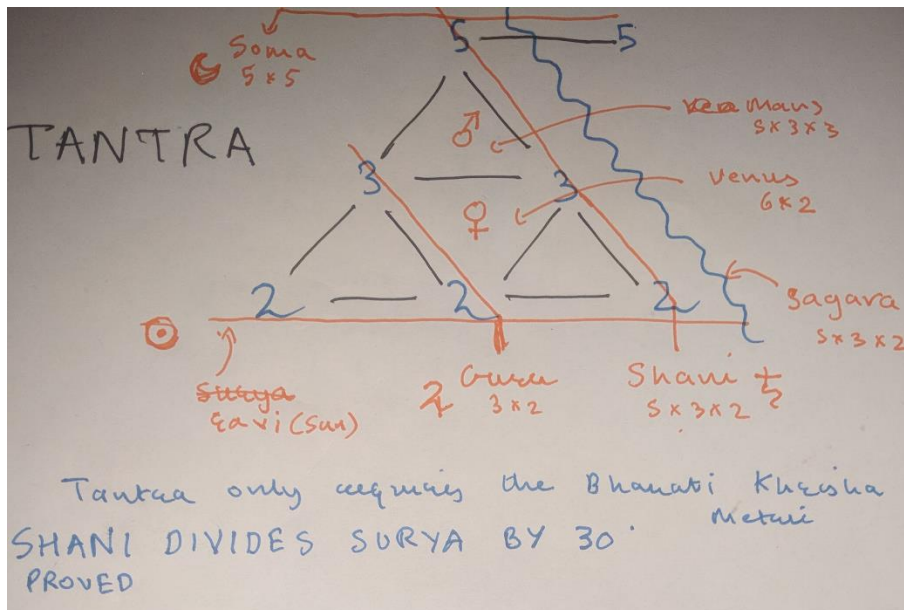 Soma
5 × 5
5 5
TANTRA
♂
Mars
5 × 3 × 3
3 3
♀
Venus
6 × 2
2 2 2
Sagara
5 × 3 × 2
Surya
Ravi (Sun)
♃ Guru
3 × 2
Shani ♄
5 × 3 × 2
Tantra only requires the Bhanati
SHANI DIVIDES SURYA BY 30
PROVED